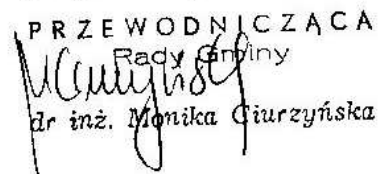 PRZEWODNICZĄCA
Rady Gminy
dr inż. Monika Ciurzyńska